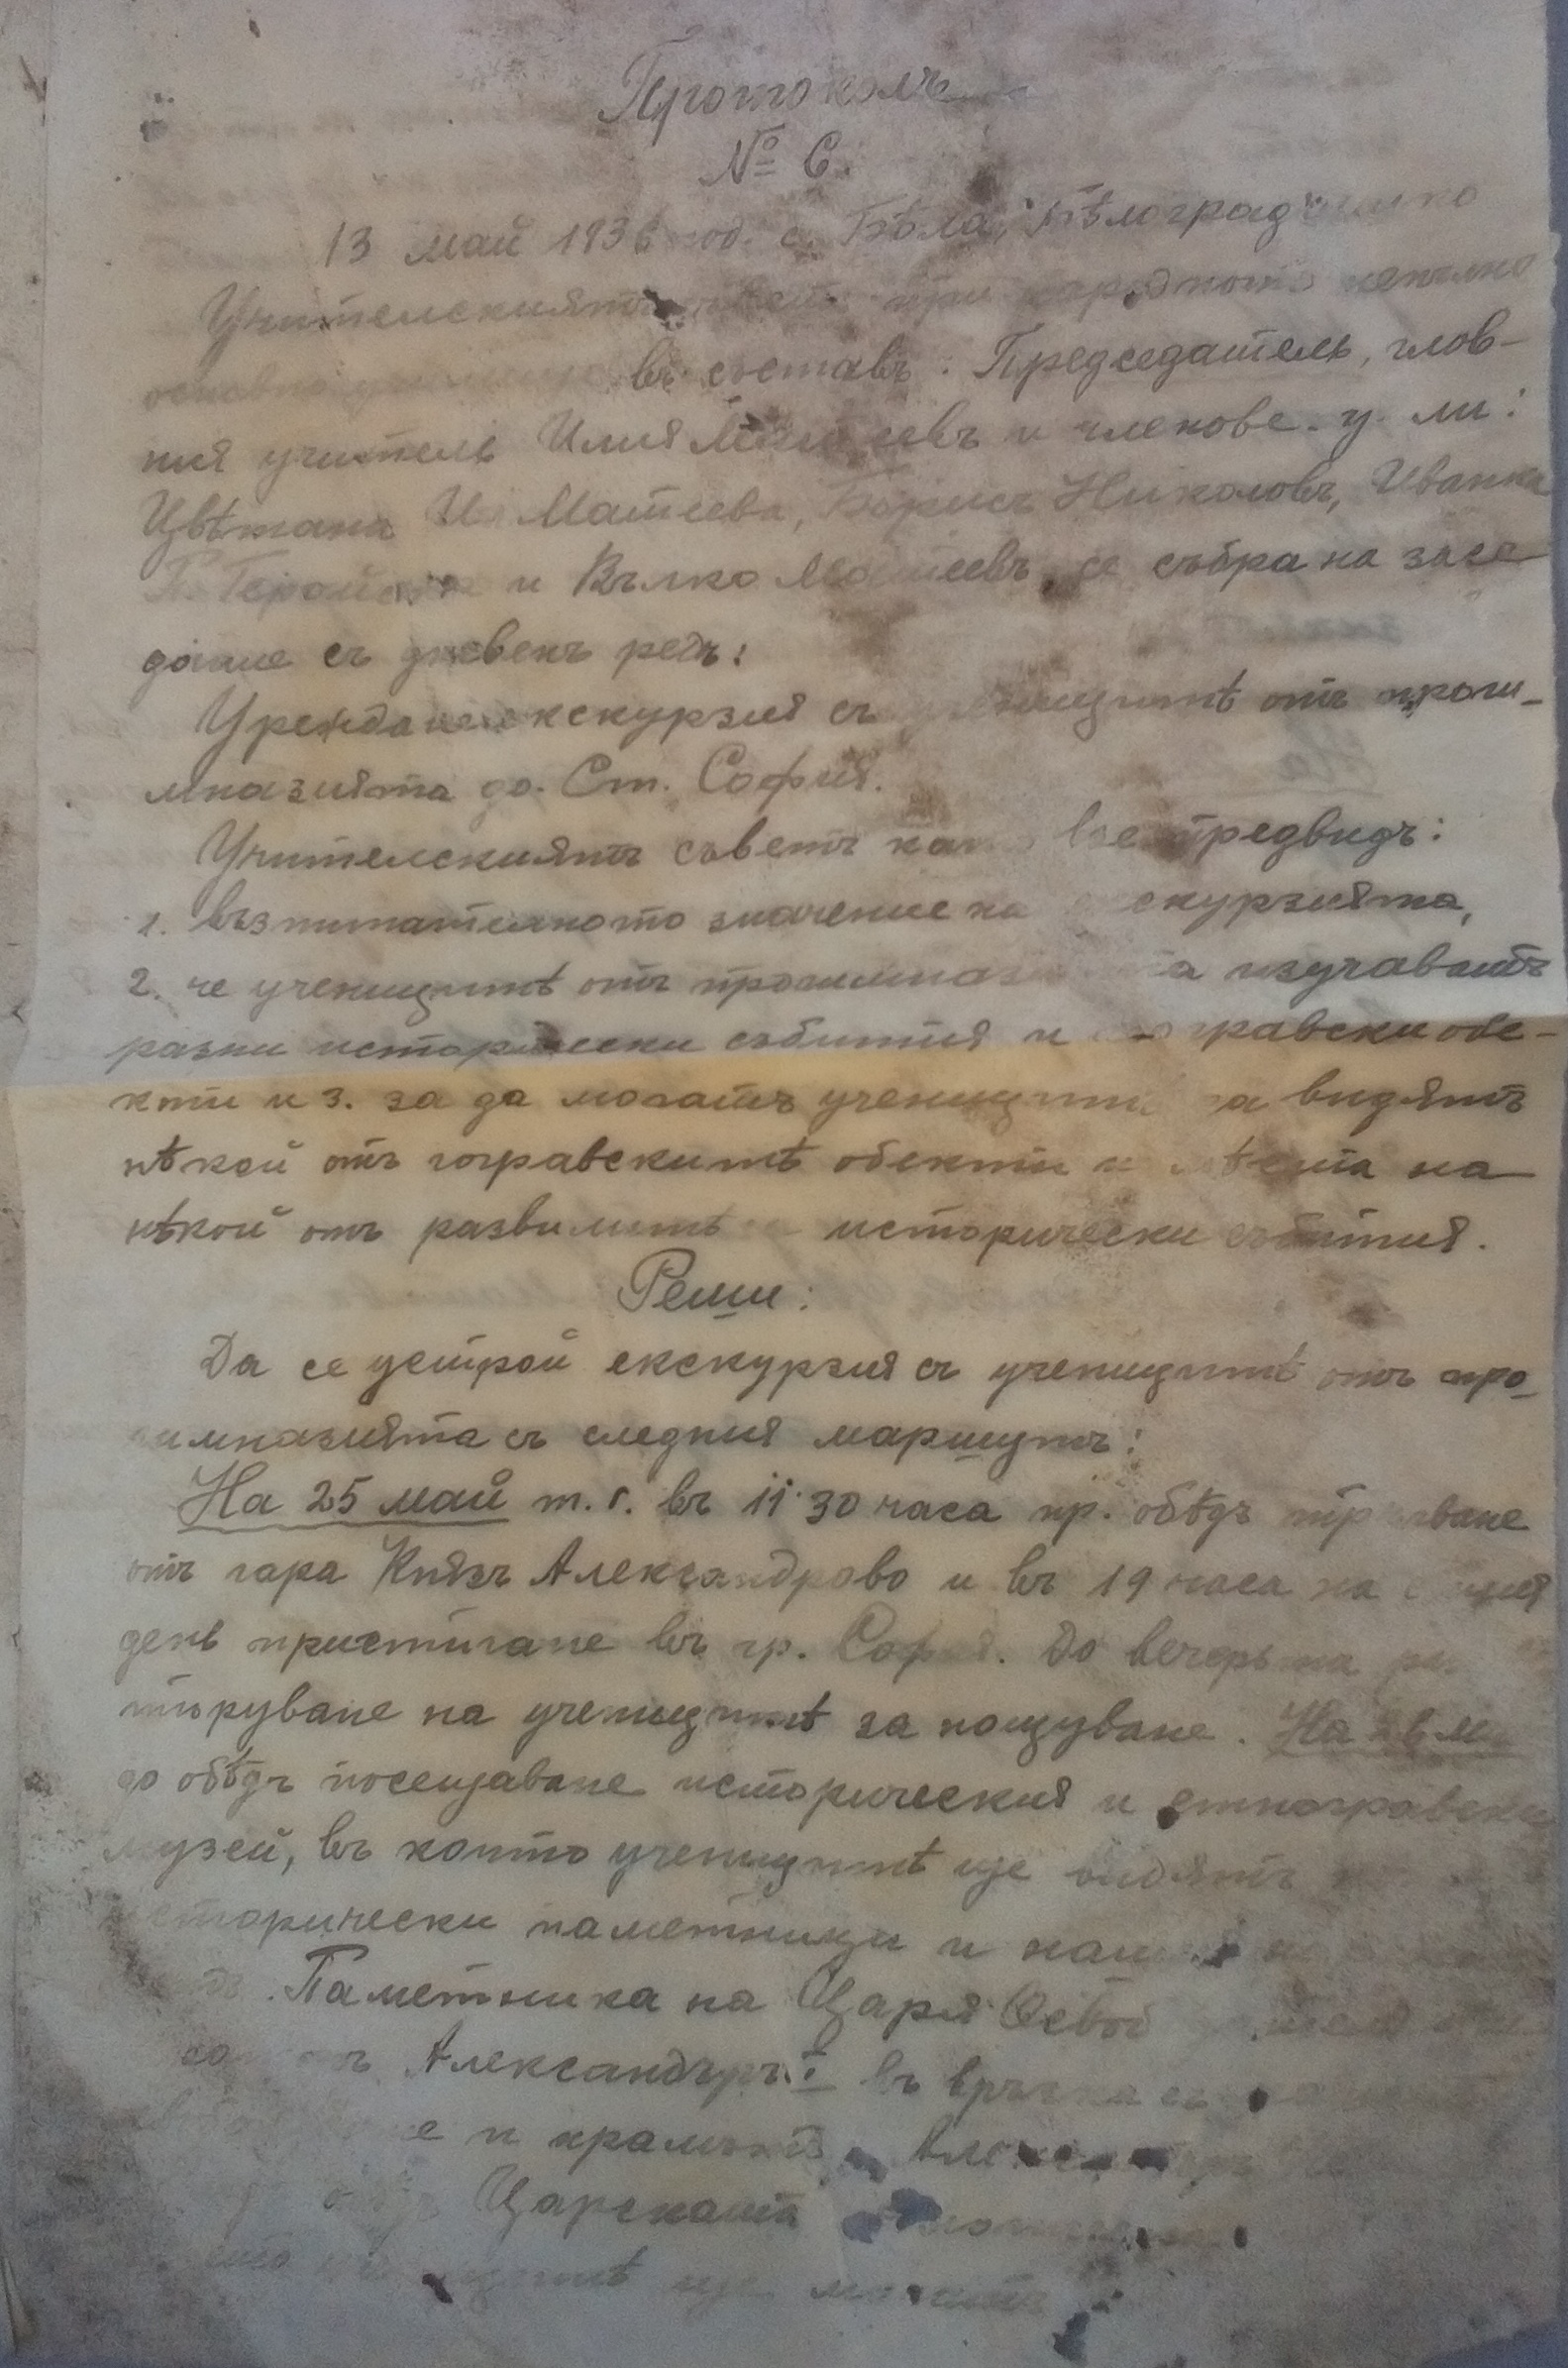 Протоколъ
№ 6.
13 май 1936 год. с. Бѣла, Бѣлоградчишко
Учителскиятъ при народното непълно
основно училище въ съставъ: Председатель, глав-
ния учитель Илия и членове у. ли:
Цвѣтана Ил. Матеева, Борисъ Николовъ, Иванка
и Вълко Матеевъ, се събра на засе
дание съ дневенъ редъ:
Уреждане екскурзия съ ученицитѣ отъ проги-
мназията до Ст. София.
Учителскиятъ съветъ като взе предвидъ:
1. възпитателното значение на екскурзията,
2. че ученицитѣ отъ прогимназията изучаватъ
разни исторически събития и гографски обе-
кти и 3. за да могатъ ученицитѣ да видятъ
нѣкой отъ гографскитѣ обекти и мѣста на
нѣкой отъ развилитѣ исторически събития.
Реши:
Да се устрой екскурзия съ ученицитѣ отъ про-
гимназията съ следния маршутъ:
На 25 май т. г. въ 11·30 часа пр. обѣдъ тръгване
отъ гара Князъ Александрово и въ 19 часа на същия
день пристигане въ гр. София. До вечерьта
тируване на ученицитѣ за нощуване. На
до обѣдъ посещаване историческия и етнографски
музей, въ които ученицитѣ ще видятъ
исторически паметници и
Паметника на Царя Освоб
Александъръ II въ връзка съ
е и храмътъ Александъръ
обѣдъ Царската
ученицитѣ ще могатъ